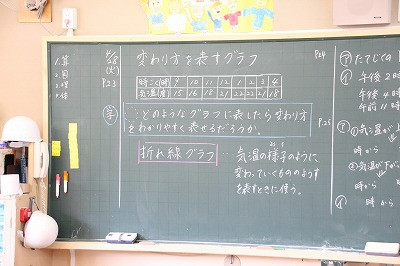 1.算
2.国
3.理
4.体
(火)
P.23
変わり方を表すグラフ
P.24
時こく(時) 9 10 11 12 1 2 3 4
気温(度) 15 16 18 21 22 22 21 18
どのようなグラフに表したら変わり方
をわかりやすく表せるだろうか。
P.25
折れ線グラフ … 気温の様子のように
変わっていくもののようす
を表すときに使う。
㋐ たてじくの
㋑ 午後2
午後4時
午前11
① 気温が上
時から
② 気温が下が
時から
時から